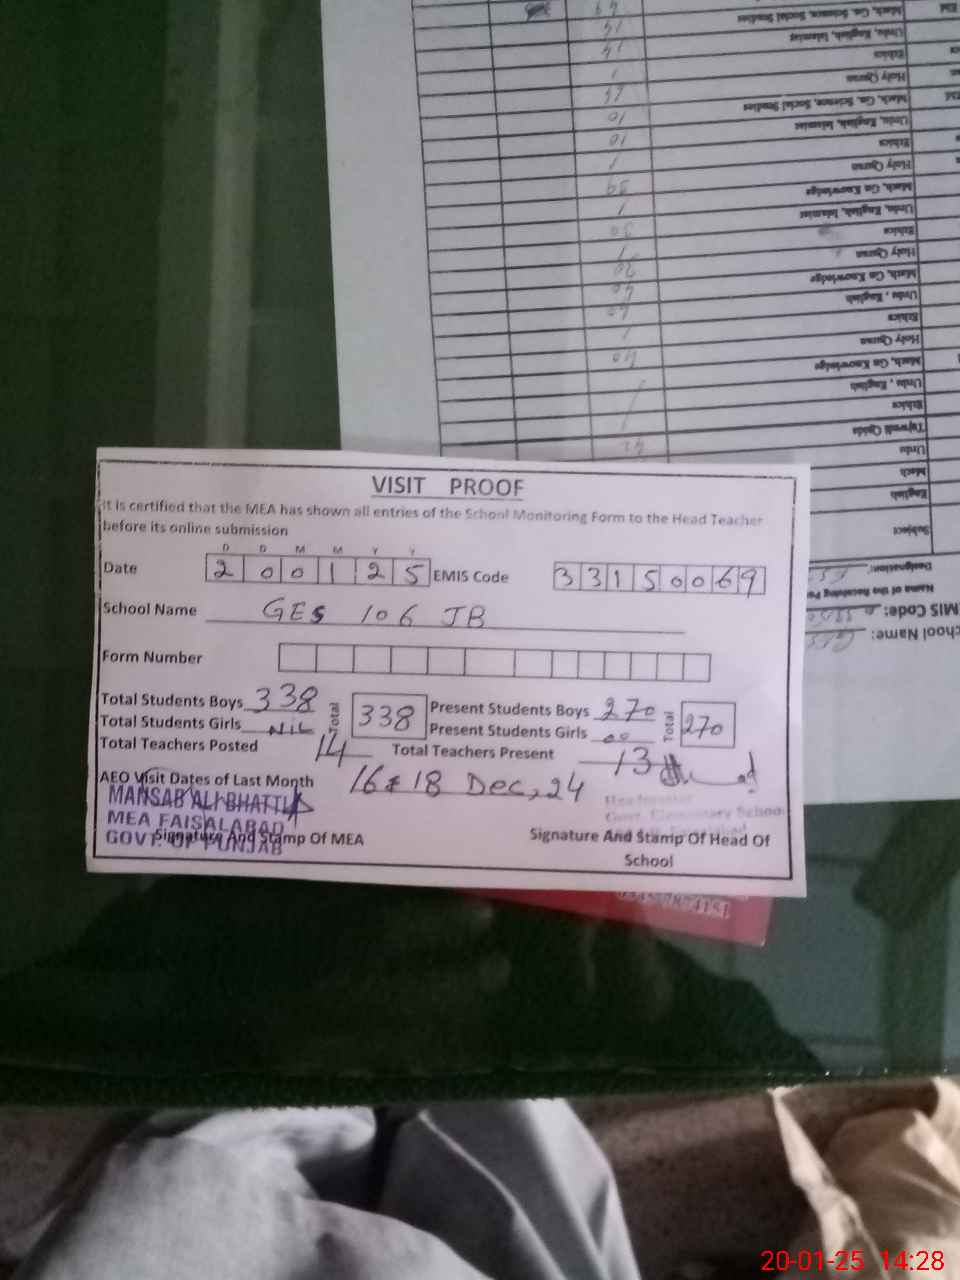 VISIT PROOF
It is certified that the MEA has shown all entries of the School Monitoring Form to the Head Teacher
before its online submission
D D M M Y Y
Date 2 0 0 1 2 5 EMIS Code 3 3 1 5 0 0 6 9
School Name GES 106 JB
Form Number
Total Students Boys 338 Total 338 Present Students Boys 270 Total 270
Total Students Girls NIL Present Students Girls 00
Total Teachers Posted 14 Total Teachers Present 13
AEO Visit Dates of Last Month 16 & 18 Dec, 24
MANSAB ALI BHATTI
MEA FAISALABAD
GOVT. OF PUNJAB
Signature And Stamp Of MEA
Govt. Elementary School
Signature And Stamp Of Head Of
School
School Name:
EMIS Code:
Name of the Receiving
Designation:
Subject
English
Math
Urdu 42
Tajweedi Qaida
Ethics
Urdu, English
Math, Gn Knowledge 40
Holy Quran
Ethics
Urdu, English
Math, Gn Knowledge
Holy Quran
Ethics 30
Urdu, English, Islamiat
Math, Gn Knowledge 39
Holy Quran
Ethics 10
Urdu, English, Islamiat 10
Math, Gn. Science, Social Studies
Holy Quran
Ethics 14
Urdu, English, Islamiat
Math, Gn. Science, Social Studies
20-01-25 14:28